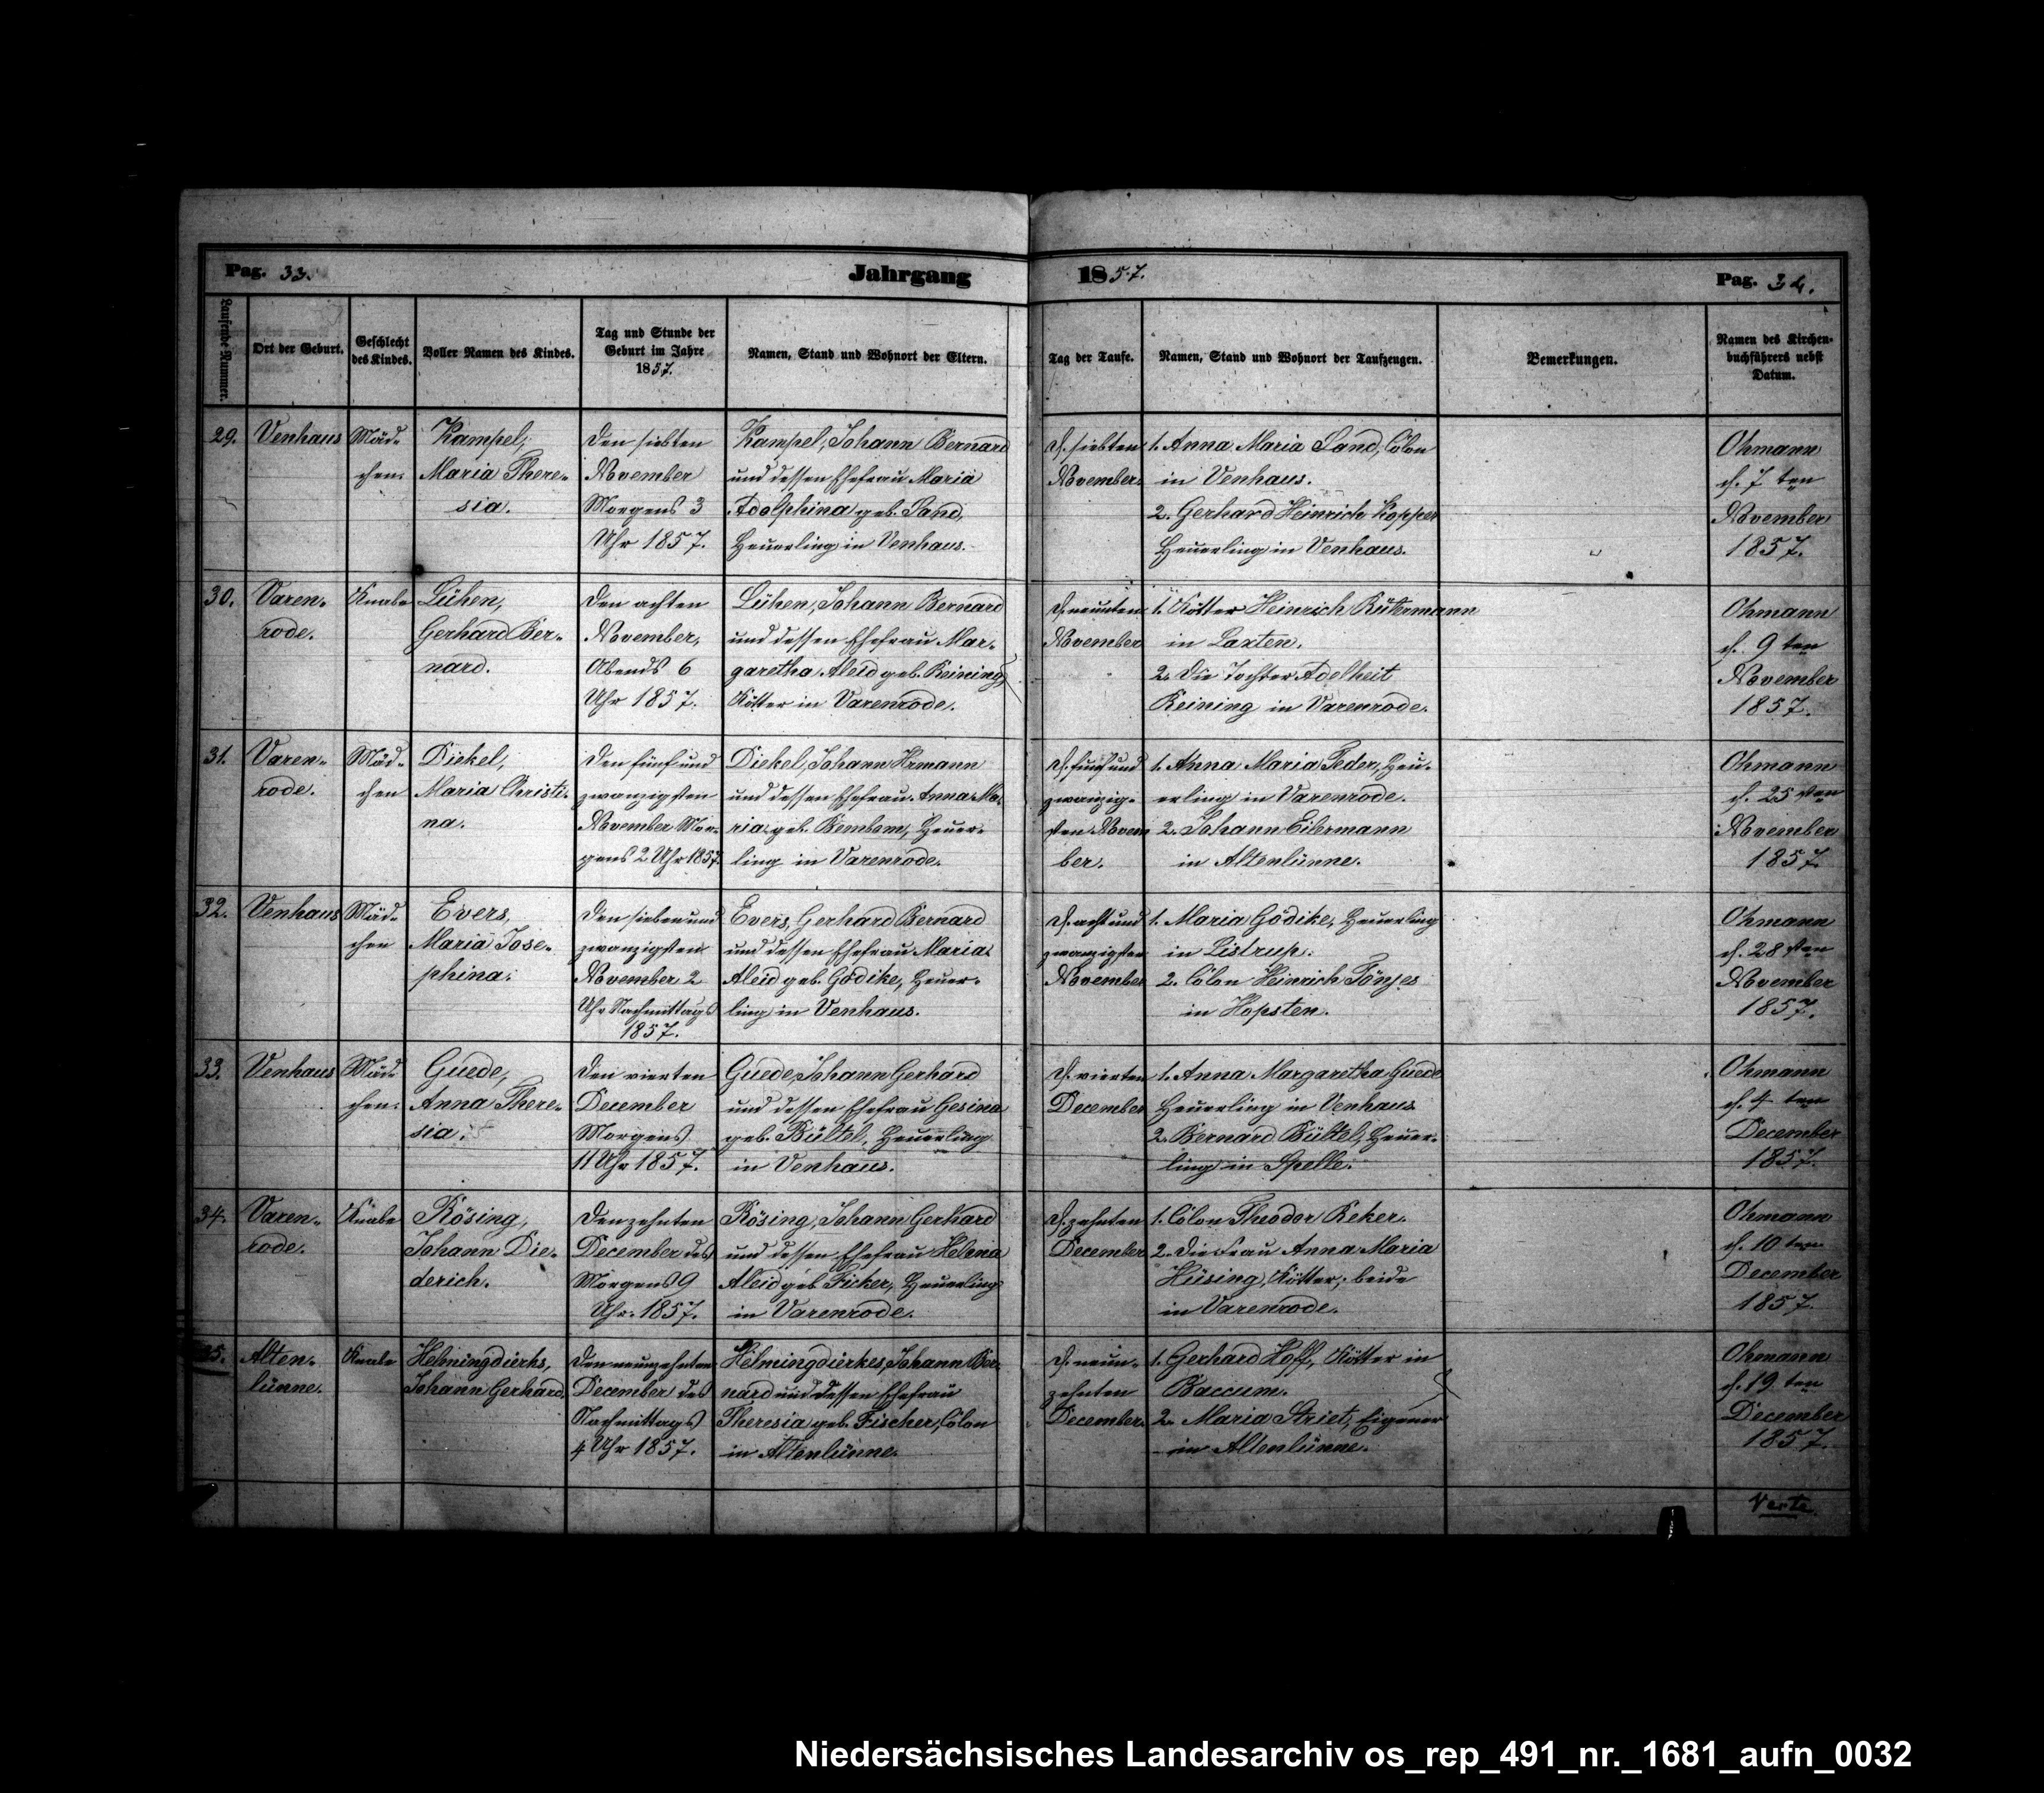 Pag. 33.
Jahrgang
1857.
Pag. 34.
Laufende Nummer.
Ort der Geburt.
Geschlecht
des Kindes.
Voller Namen des Kindes.
Tag und Stunde der
Geburt im Jahre
1857.
Namen, Stand und Wohnort der Eltern.
Tag der Taufe.
Namen, Stand und Wohnort der Taufzeugen.
Bemerkungen.
Namen des Kirchen-
buchführers nebst
Datum.
29.
Venhaus
Mäd-
chen.
Kampel,
Maria There-
sia.
Den siebten
November
Morgens 3
Uhr 1857.
Kampel, Johann Bernard
und dessen Ehefrau Maria
Adolphina geb. Sand,
Heuerling in Venhaus.
D. siebten
November.
1. Anna Maria Sand, Colon
in Venhaus.
2. Gerhard Heinrich Kopper
Heuerling in Venhaus.
Ohmann
d. 7 ten
November
1857.
30.
Varen-
rode.
Knabe
Lühen,
Gerhard Ber-
nard.
Den achten
November,
Abends 6
Uhr 1857.
Lühen, Johann Bernard
und dessen Ehefrau Mar-
garetha Aleid geb. Reining,
Kötter in Varenrode.
D. neunten
November
1. Kötter Heinrich Rütermann
in Laxten.
2. Die Tochter Adelheit
Reining in Varenrode.
Ohmann
d. 9 ten
November
1857.
31.
Varen-
rode.
Mäd-
chen
Diekel,
Maria Christi-
na.
Den fünf und
zwanzigsten
November Mor-
gens 2 Uhr 1857.
Diekel, Johann Hrmann
und dessen Ehefrau Anna Ma-
ria geb. Bembom, Heuer-
ling in Varenrode.
D. fünf und
zwanzig-
sten Novem
ber.
1. Anna Maria Feder, Heu-
erling in Varenrode.
2. Johann Eilermann
in Altenlünne.
Ohmann
d. 25 sten
November
1857.
32.
Venhaus
Mäd-
chen
Evers,
Maria Jose-
phina.
Den sieben und
zwanzigsten
November 2
Uhr Nachmittags
1857.
Evers, Gerhard Bernard
und dessen Ehefrau Maria
Aleid geb. Gödike, Heuer-
ling in Venhaus.
D. acht und
zwanzigsten
November
1. Maria Gödike, Heuerling
in Listrup.
2. Colon Heinrich Tönjes
in Hopsten.
Ohmann
d. 28 sten
November
1857.
33.
Venhaus
Mäd-
chen.
Guede,
Anna There-
sia.
Den vierten
December
Morgens
11 Uhr 1857.
Guede, Johann Gerhard
und dessen Ehefrau Gesina
geb. Bültel, Heuerling
in Venhaus.
D. vierten
December
1. Anna Margaretha Guede
Heuerling in Venhaus
2. Bernard Bültel, Heuer-
ling in Spelle.
Ohmann
d. 4 ten
December
1857.
34.
Varen-
rode.
Knabe
Rösing,
Johann Die-
derich.
Den zehnten
December des
Morgens 9
Uhr. 1857.
Rösing, Johann Gerhard
und dessen Ehefrau Helena
Aleid geb. Ficker, Heuerling
in Varenrode.
D. zehnten
December
1. Colon Theodor Reker.
2. Die Frau Anna Maria
Hüsing, Kötter, beide
in Varenrode.
Ohmann
d. 10 ten
December
1857.
35.
Alten-
lünne.
Knabe
Helmingdierks,
Johann Gerhard.
Den neunzehnten
December des
Nachmittags
4 Uhr 1857.
Helmingdierkes, Johann Ber-
nard und dessen Ehefrau
Theresia geb. Fischer, Colon
in Altenlünne.
D. neun-
zehnten
December.
1. Gerhard Hoff, Kötter in
Baccum.
2. Maria Striet, Eigener
in Altenlünne.
Ohmann
d. 19 ten
December
1857.
Verte.
Niedersächsisches Landesarchiv os_rep_491_nr._1681_aufn_0032